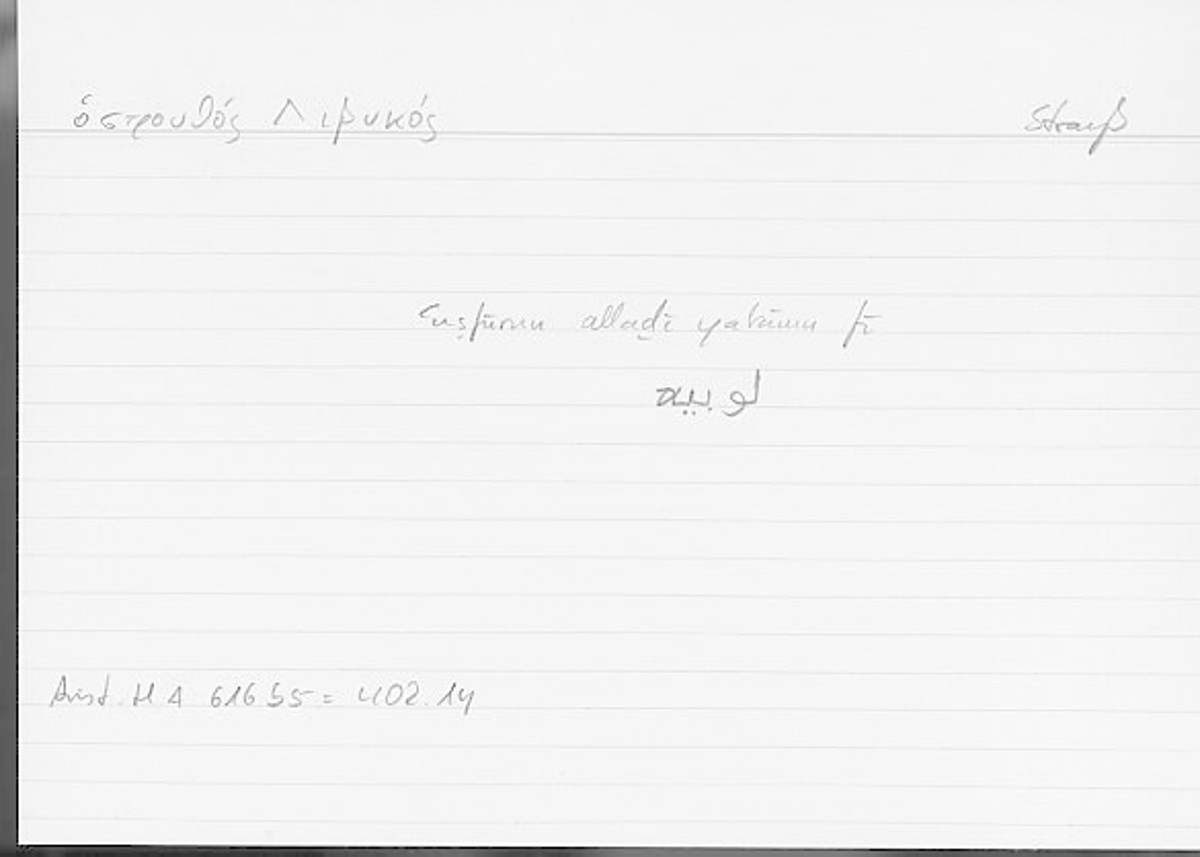 ὁ στρουθός Λιβυκός Strauß
ʿuṣfūrun allaḏī yakūnu fī
لوبيه
Arist. HA 616 b5 = 402.14